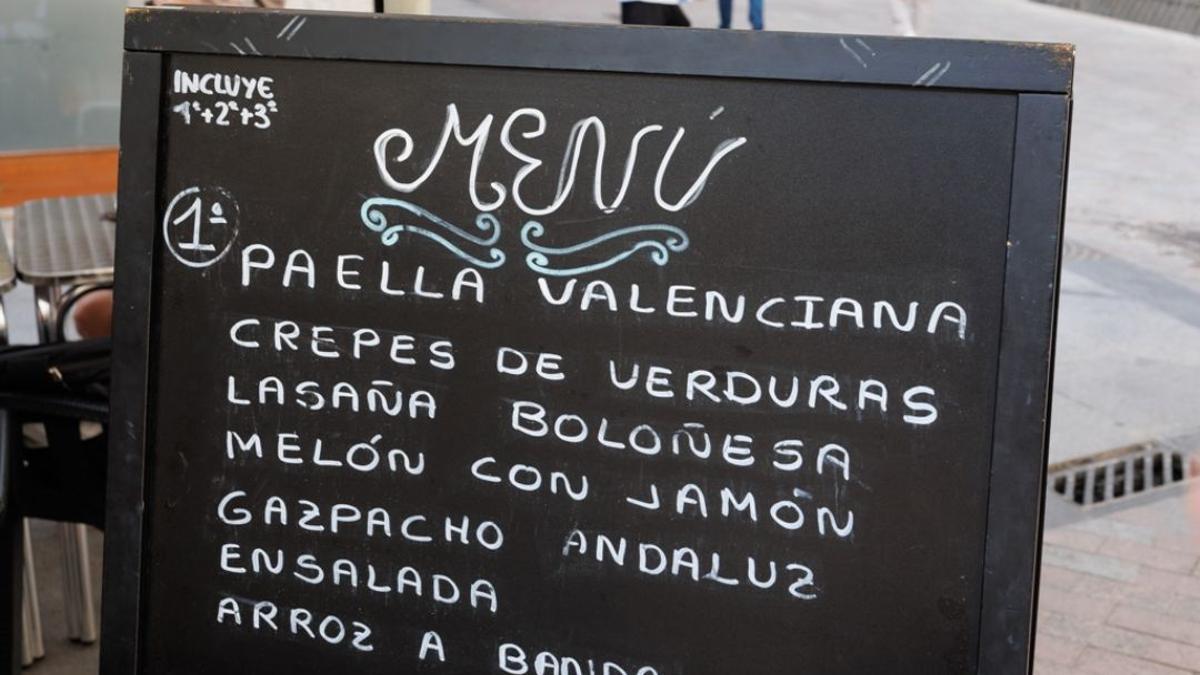 INCLUYE
1º+2º+3º
MENÚ
1º
PAELLA VALENCIANA
CREPES DE VERDURAS
LASAÑA BOLOÑESA
MELÓN CON JAMÓN
GAZPACHO ANDALUZ
ENSALADA
ARROZ A BANDA